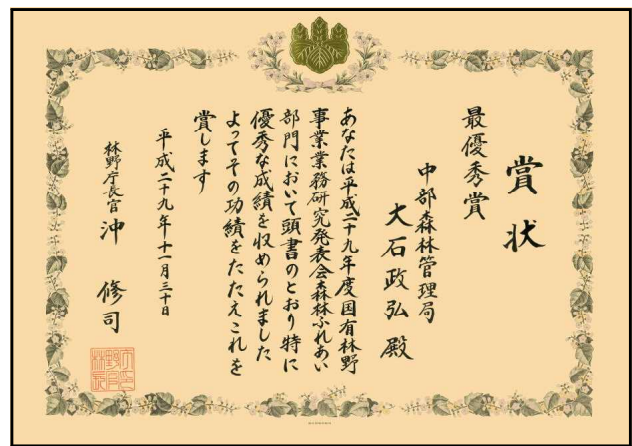 賞状
最優秀賞
中部森林管理局
大石政弘殿
あなたは平成二十九年度国有林野
事業業務研究発表会森林ふれあい
部門において頭書のとおり特に
優秀な成績を収められました
よってその功績をたたえこれを
賞します
平成二十九年十一月三十日
林野庁長官 沖 修司